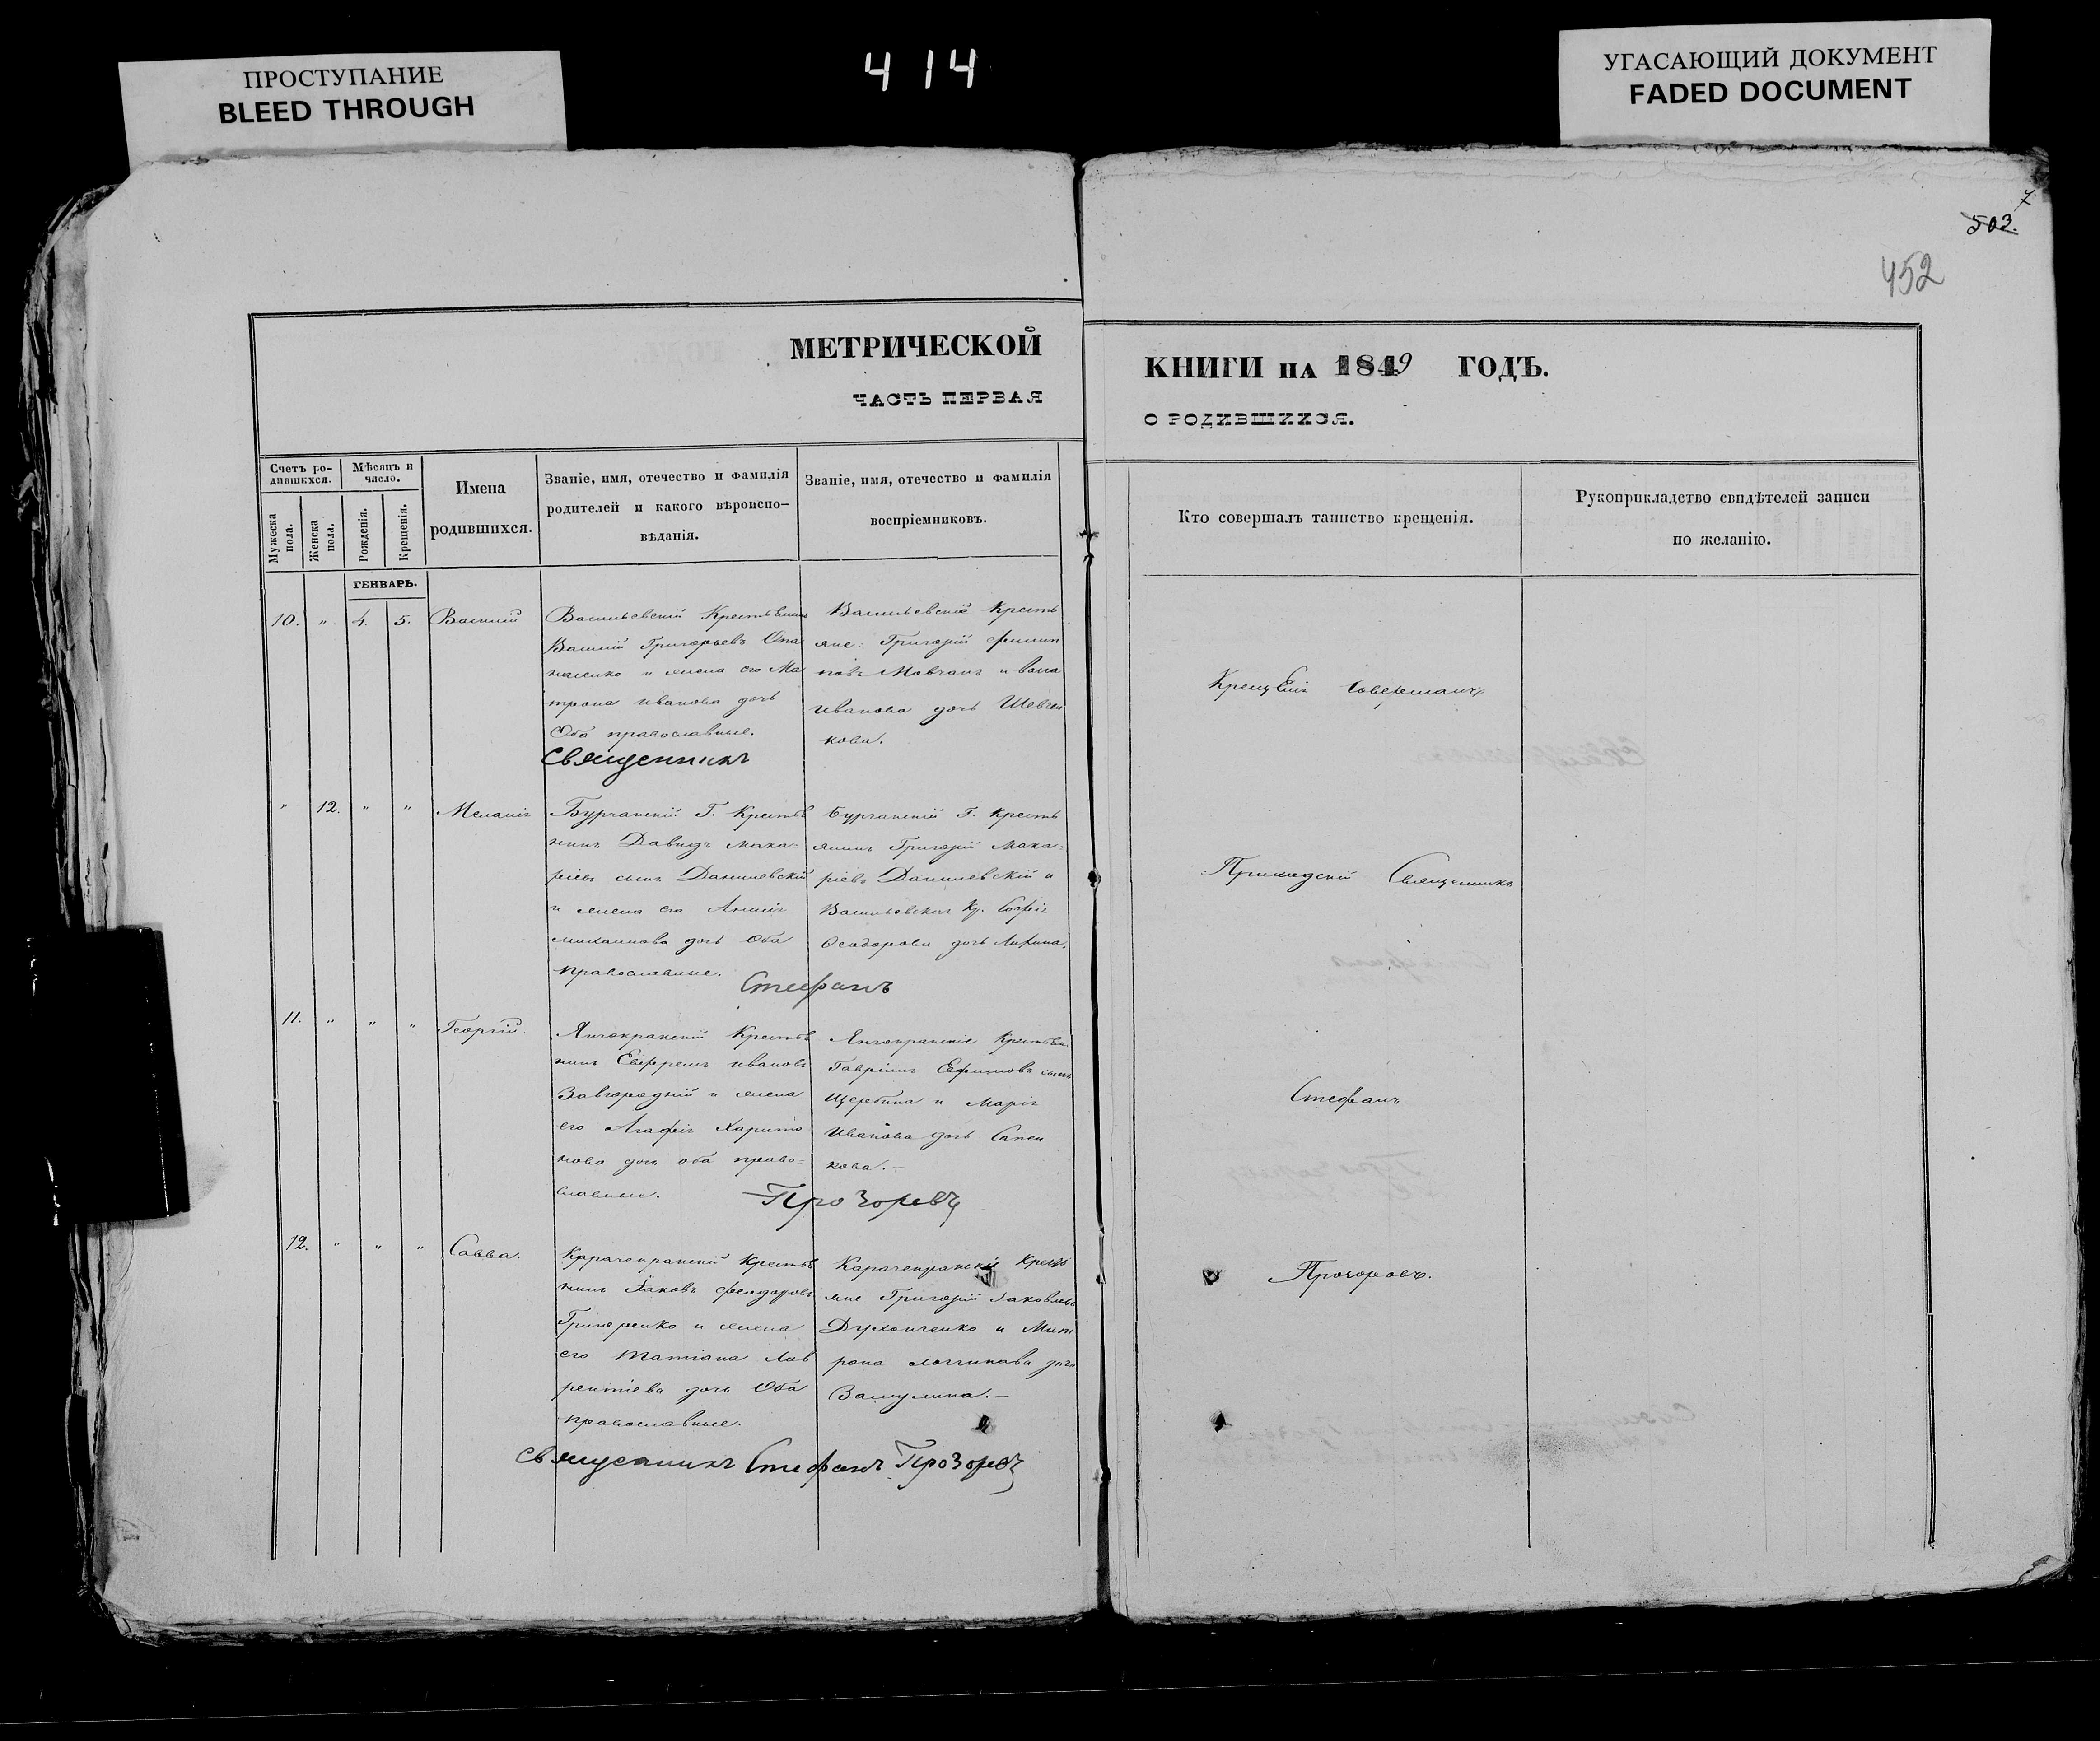 ПРОСТУПАНИЕ
BLEED THROUGH
414
УГАСАЮЩИЙ ДОКУМЕНТ
FADED DOCUMENT
503.
7
452
МЕТРИЧЕСКОЙ
ЧАСТЬ ПЕРВАЯ
КНИГИ НА 1849 ГОДЪ.
О РОДИВШИХСЯ.
Счетъ ро-
дившихся.
Мужеска
пола.
Женска
пола.
Мѣсяцъ и
число.
Рожденія.
Крещенія.
Имена
родившихся.
Званіе, имя, отечество и фамилія
родителей и какого вѣроиспо-
вѣданія.
Званіе, имя, отечество и фамилія
воспріемниковъ.
Кто совершалъ таинство крещенія.
Рукоприкладство свидѣтелей записи
по желанію.
ГЕНВАРЬ.
10. " 4. 5. Василій
Васильевскій Крестьянинъ
Василій Григорьевъ Опа
насенко и жена его Ма
трона иванова дочь
Оба православные.
Священникъ
Васильевскіе Кресть
яне: Григорій Филип
повъ Мовчанъ и
Иванова дочь Шевчен
кова.
Крещеніе совершалъ
" 12. " " Меланія
Бурчакскій Г. Крестья
нинъ Давидъ Мака=
ріевъ сынъ Данилевскій
и жена его
михаилова дочь Оба
православные.
Стефанъ
Бурчакскій Г. Кресть
янинъ Григорій Мака=
ріевъ Данилевскій и
Васильевская Кр. Софія
Феодорова дочь
Приходскій Священникъ
11. " " " Георгій.
Янчокракскій Крестья
нинъ Евфремъ ивановъ
Завгородній и жена
его Агафія Харито
нова дочь оба право=
славные.
Прозоровъ
Янчокракскіе Крестьяне
Гавріилъ Евфимовъ сынъ
Щербина и Марія
Иванова дочь Сапен
кова.-
Стефанъ
12. " " " Савва.
Карачекракскій Крестья
нинъ Іаковъ Феодоровъ
и жена
его Татіана Лав
рентіева дочь Оба
православные.
Карачекракскіе Кресть
яне Григорій Іаковлевъ
и Мат
рона Логгинова дочь
Прозоровъ.
Священникъ Стефанъ Прозоровъ